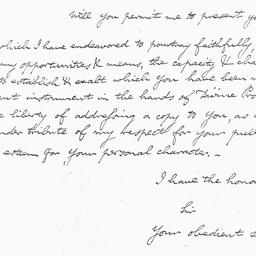 Will you permit me to present y
which I have endeavored to pourtray faithfully,
my opportunities & means, the capacity & cha
to establish & exalt which You have been
ent instrument in the hands of Divine Pro
e liberty of addressing a copy to You, as
nder tribute of my respect for your pub
esteem for Your personal character. –
I have the honor
Sir
Your obedient s